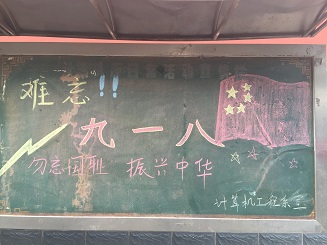 难忘!!
九一八
勿忘国耻 振兴中华
计算机工程系三